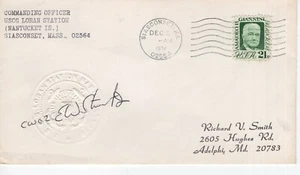 COMMANDING OFFICER
USCG LORAN STATION
(NANTUCKET IS.)
SIASCONSET, MASS. 02564
SIASCONSET, MA
DEC
02564
AMADEO P. GIANNINI
21¢
CWO2
Richard V. Smith
2605 Hughes Rd.
Adelphi, Md. 20783